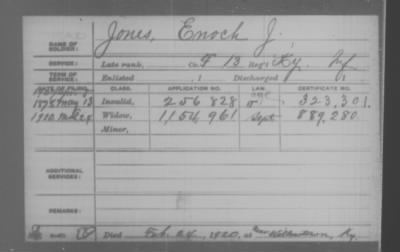 Jones, Enoch J.
NAME OF SOLDIER:
SERVICE: Late rank, Co. F 13 Reg't Ky. Inf
TERM OF SERVICE: Enlisted , 1 Discharged , 1
DATE OF FILING. CLASS. APPLICATION NO. LAW. CERTIFICATE NO.
May 13 Invalid, 256 828 323,301.
1920 Widow, 1,154,961 Sept 889,280
Minor,
ADDITIONAL SERVICES:
REMARKS:
Died Feb. 24, 1920, at Ky.